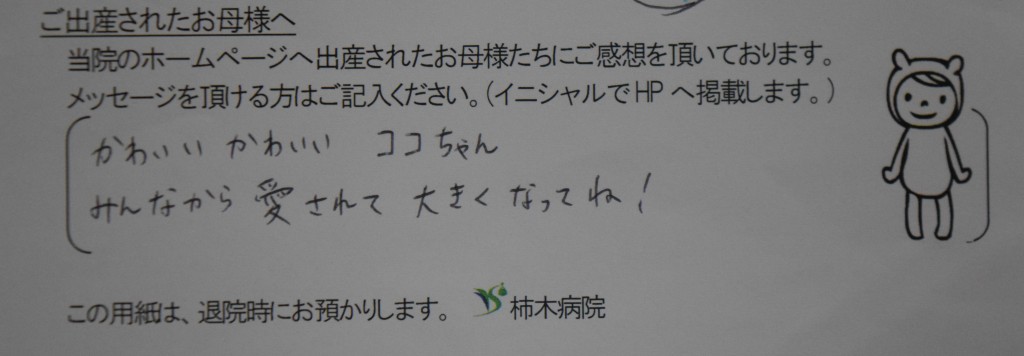 ご出産されたお母様へ
当院のホームページへ出産されたお母様たちにご感想を頂いております。
メッセージを頂ける方はご記入ください。（イニシャルでHPへ掲載します。）
かわいいかわいい ココちゃん
みんなから愛されて大きくなってね！
この用紙は、退院時にお預かりします。 柿木病院